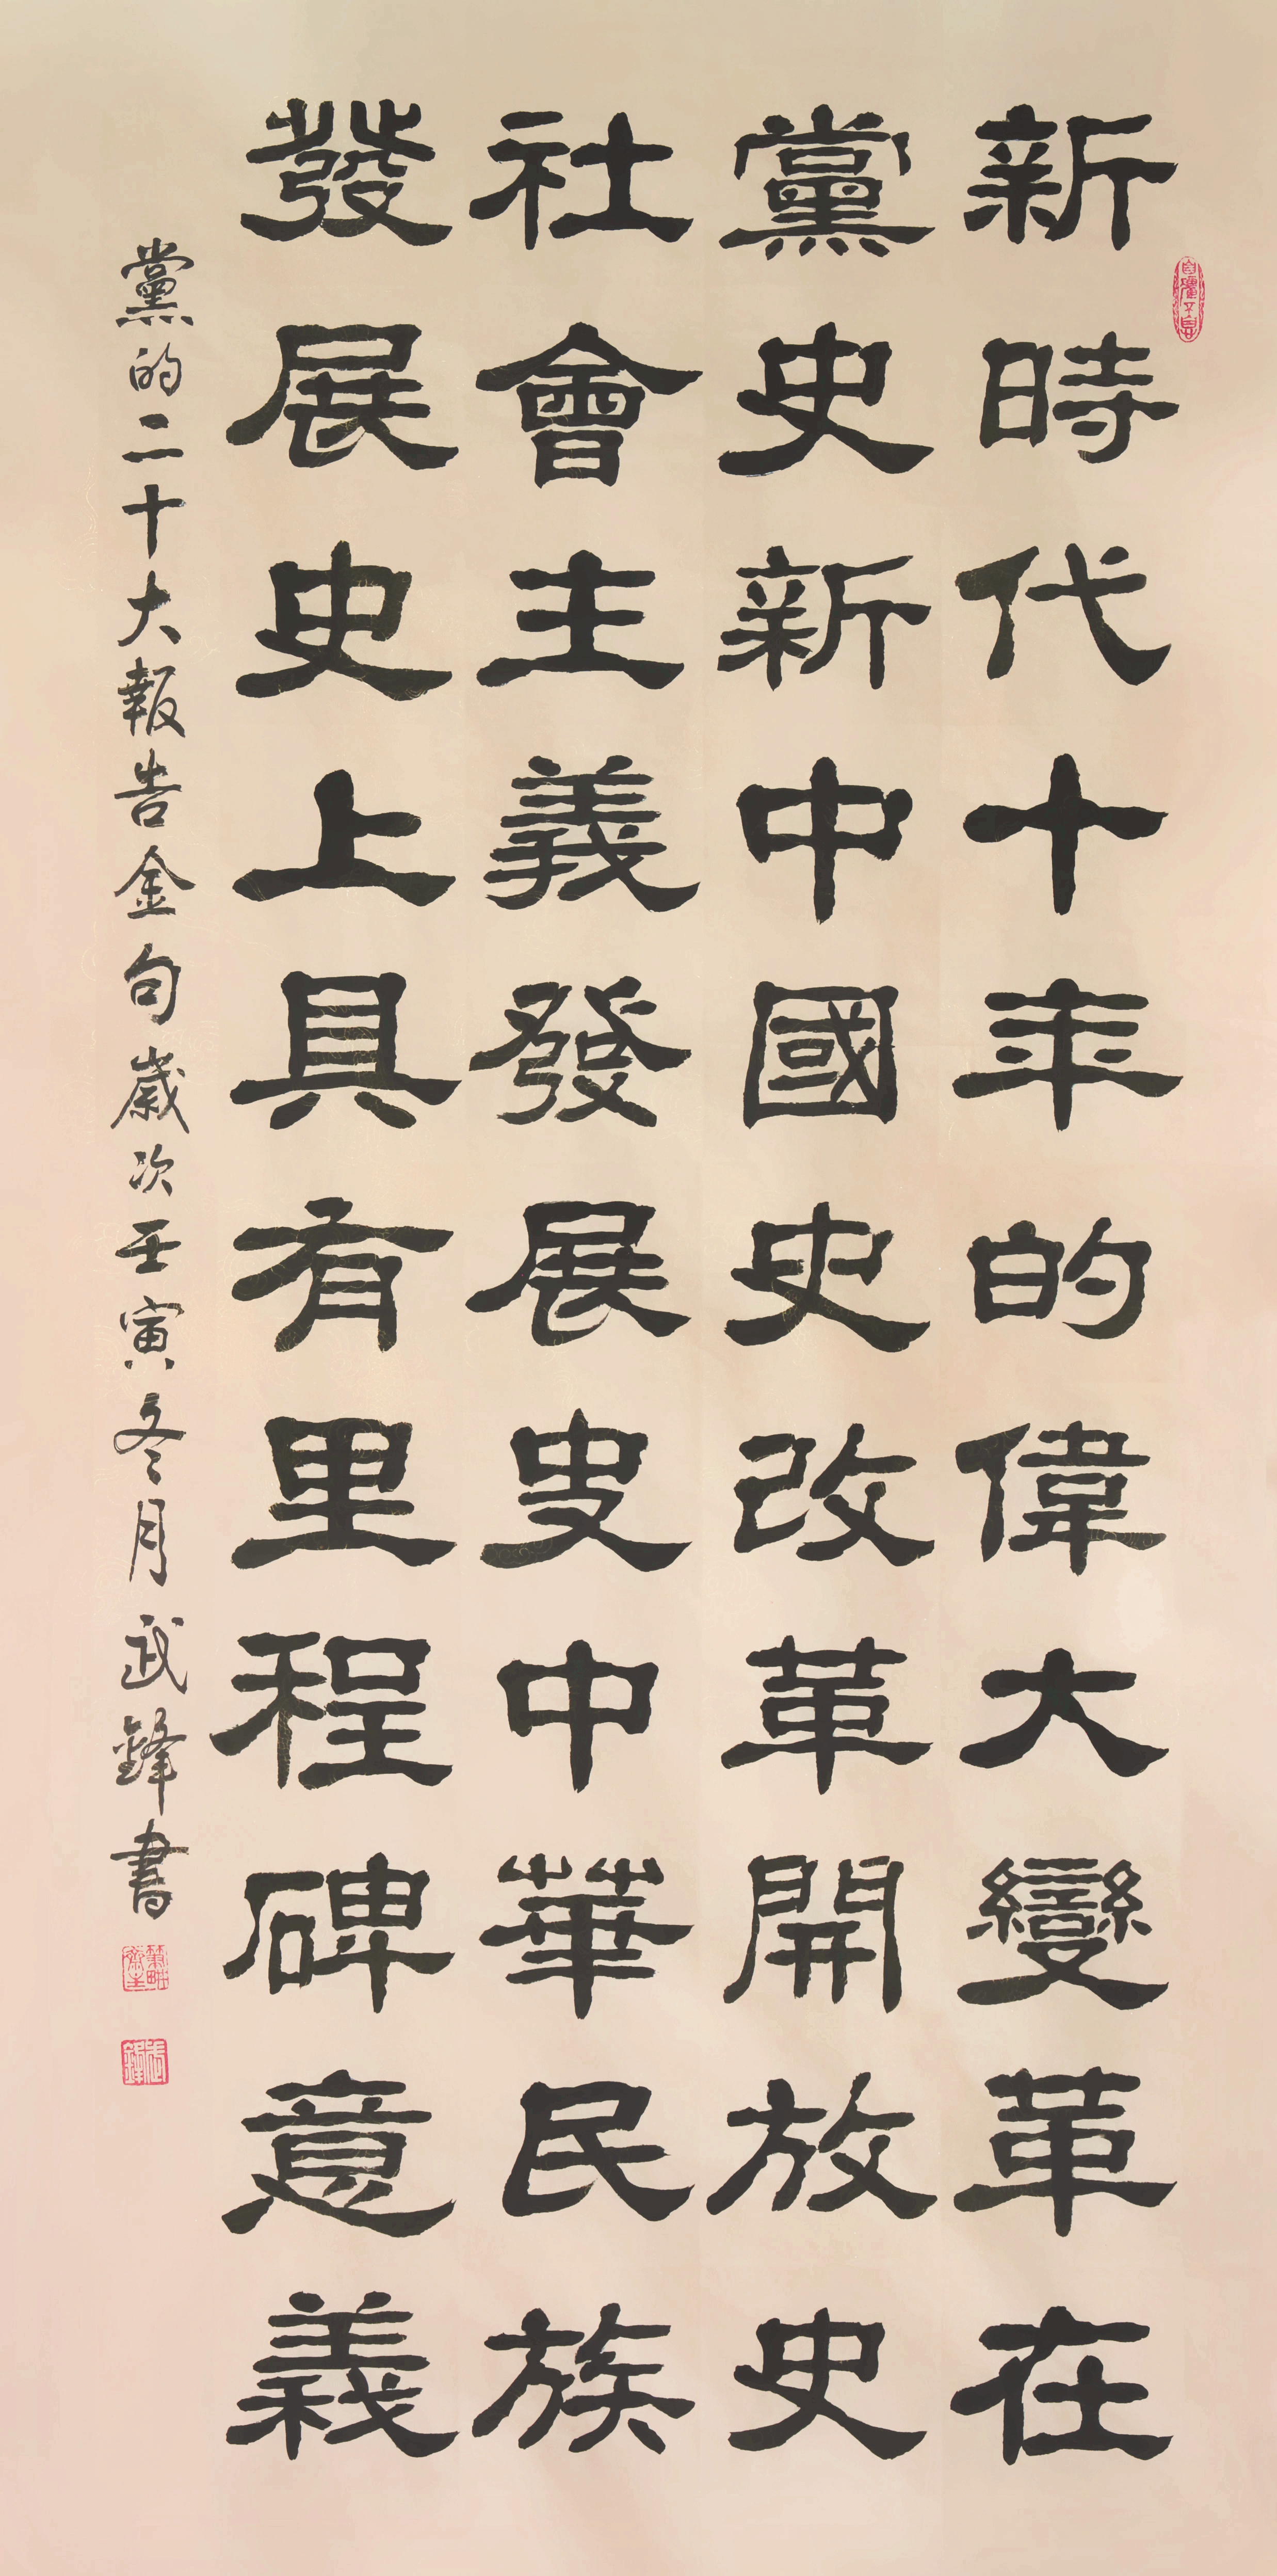 新時代十年的偉大變革在
黨史新中國史改革開放史
社會主義發展史中華民族
發展史上具有里程碑意義
黨的二十大報告金句歲次壬寅冬月武鋒書
自彊不息